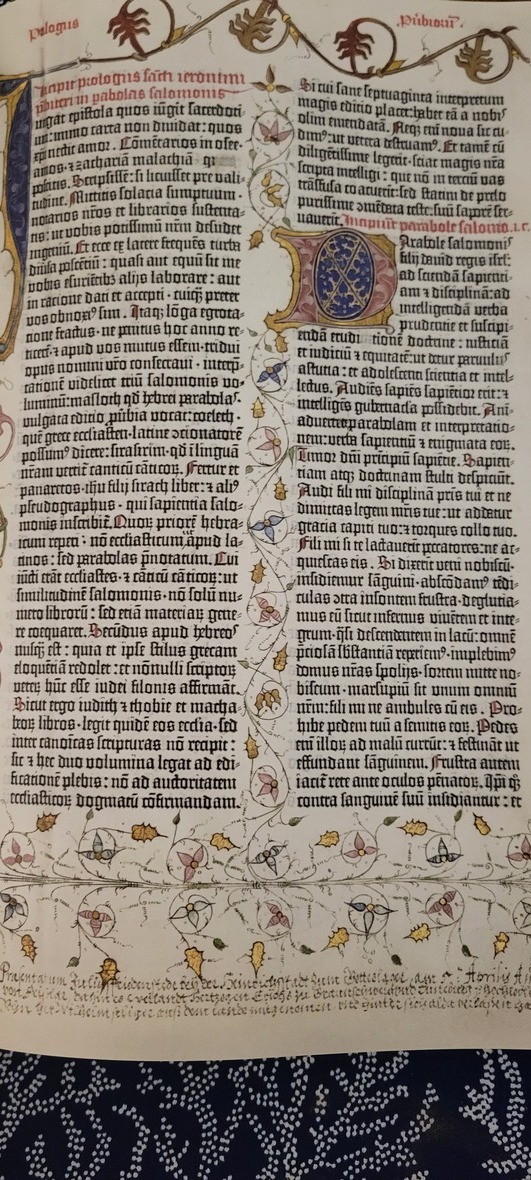 Prologus
Pũbiorũ.
Incipit prologus sãcti ieronimi
p̃biteri in parabolas salomonis
iungat epistola quos iũgit sacerdoti-
um: immo carta non diuidat: quos
xp̃i nectit amor. Cõmẽtarios in osee.
amos. ⁊ zachariã malachiã·
poscitis. Scripsissẽ: si licuisset pre vali-
tudine. Mittitis solacia sumptuum.
notarios nr̃os et librarios sustenta-
tis: ut vobis potissimũ nr̃m desudet
ingeniũ. Et ecce ex latere frequẽs turba
diu̾sa poscẽtiũ: quasi aut equũ sit me
vobis esuriẽtibꝫ alijs laborare: aut
in racione dati et accepti· cuiꝗ̃ preter
vos obnoxiꝰ sum. Itaꝗ̃ lõga egrota-
tione fractus· ne penitus hoc anno re-
ticerẽ· ⁊ apud vos mutus essem· tridui
opus nomini vr̃o consecraui· interp̃-
tationẽ videlicet triũ salomonis vo-
luminũ: masloth qđ hebrei parabolaſ.
vulgata editio p̃ubia vocat: coeleth·
quẽ grece ecclesiasten· latine ↄcionatorẽ
possumꝰ dicere: sirasirim· qđ ĩ linguã
nr̃am vertit̃ canticũ cãticoꝝ. Fertur et
panaretos· ihũ filij sirach liber: ⁊ aliꝰ
pseudographus· qui sapientia salo-
monis inscribit̃. Quoꝝ priorẽ hebra-
icum reperi· nõ ecclesiasticũ ut apud la-
tinos: sed parabolas p̃notatum. Cui
iũcti erãt ecclesiastes· ⁊ cãticũ cãticoꝝ: ut
similitudinẽ salomonis· nõ solũ nu-
mero librorũ: sed etiã materiaꝝ gene-
re coequaret. Secũdus apud hebreoſ
nusꝗ̃ est: quia et ipse stilus grecam
eloquẽtiã redolet: et nõnulli scriptoꝝ
veterũ hũc esse iudei filonis affirmãt.
Sicut ergo iudith ⁊ thobie et macha-
beoꝝ libros· legit quidẽ eos eccl̃ia· sed
inter canoĩcas scripturas nõ recipit:
sic ⁊ hec duo volumina legat ad edi-
ficationẽ plebis: nõ ad auctoritatem
ecclesiasticoꝝ dogmatũ cõfirmandam.
Si cui sane septuaginta interpretum
magis editio placet: habet eã a nobiſ
olim emendatã. Neꝗ̃ eñ noua sic cu-
dimꝰ: ut vetera destruamꝰ. Et tamẽ cũ
diligẽtissime legerit· sciat magis nr̃a
scripta intelligi: que nõ in tercũ vas
trãsfusa coacuerĩt: sed statim de prelo
purissime ↄmẽdata teste: suũ saporẽ ser-
uauerĩt. Incipiũt parabole salomõ. i. c.
Parabole salomoniſ
filij dauid regis isrl̃:
ad sciendã sapienti-
am ⁊ disciplinã: ad
intelligendã verba
prudentie et suscipi-
endã eruditionẽ doctrine: iusticiã
et iudiciũ ⁊ equitatẽ: ut detur paruuliſ
astutia: et adolescenti scientia et intel-
lectus. Audiẽs sapiẽs sapiẽtior erit: ⁊
intelligẽs gubernacl̃a possidebit. Ani-
aduertet parabolam et interpretatio-
nem: verba sapientiũ ⁊ enigmata eoꝝ.
Timor dñi prĩcipiũ sapiẽtie. Sapien-
tiam atꝗ̃ doctrinam stulti despiciũt.
Audi fili mi disciplinã pr̃is tui et ne
dimittas legem mr̃is tue: ut addatur
gracia capiti tuo: ⁊ torques collo tuo.
Fili mi si te lactauerĩt peccatores: ne ac-
quiescas eis. Si dixerĩt veni nobiscũ·
insidiemur sãguini· abscõdamꝰ tẽdi-
culas ↄtra insontem frustra· deglutia-
mus eũ sicut infernus viuentem et inte-
grum· q̃si descendentem in lacũ: omnẽ
p̃ciosã sb̃stantiã reperiemꝰ· implebimꝰ
domus nr̃as spolijs· sortem mitte no-
biscum· marsupiũ sit unum omniũ
nr̃m: fili mi ne ambules cũ eis. Pro-
hibe pedem tuũ a semitis eoꝝ. Pedes
em̃ illoꝝ ad malũ currũt: ⁊ festinãt ut
effundant sãguinem. Frustra autem
iacit̃ rete ante oculos pẽnatoꝝ. Ip̃i q̃ꝫ
contra sanguinẽ suũ insidiantur: et